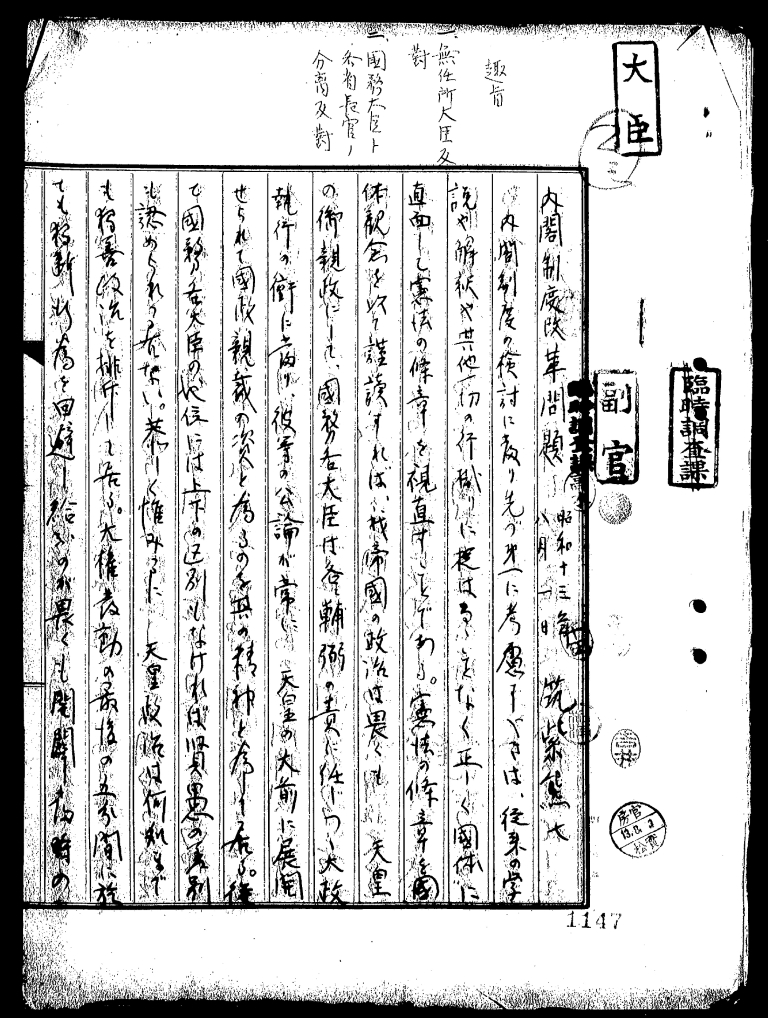 大臣
臨時調査課
副官
趣旨
一、無任所大臣反
対
二、國務大臣ト
各省長官ノ
分离反對
内閣制度改革問題
昭和十三年
八月一日
筑紫熊七
内閣制度の検討に当り先づ第一に考慮すべきは、従来の学
説や解釈や其他一切の行掛りに捉はるゝことなく正しく國体に
直面して憲法の條章を視直すことである。憲法の條章を國
体観念を以て謹読すれば、我帝國の政治は畏くも 天皇
の御親政にして、國務各大臣は各輔弼の責に任じつゝ大政
執行の衝に当り、彼等の公論が常に 天皇の大前に展開
せられて國政親裁の資と為るのを其の精神と為して居る。従
て國務各大臣の地位には上下の区別もなければ賢愚の差別
も認められて居ない。恭しく惟みるに 天皇政治は何処まで
も独善政治を排斥して居る。大権発動の最後の五分間に於
ても独断的行為を回避し給ふのが畏くも開闢当時の
1147
官房
13.8.2